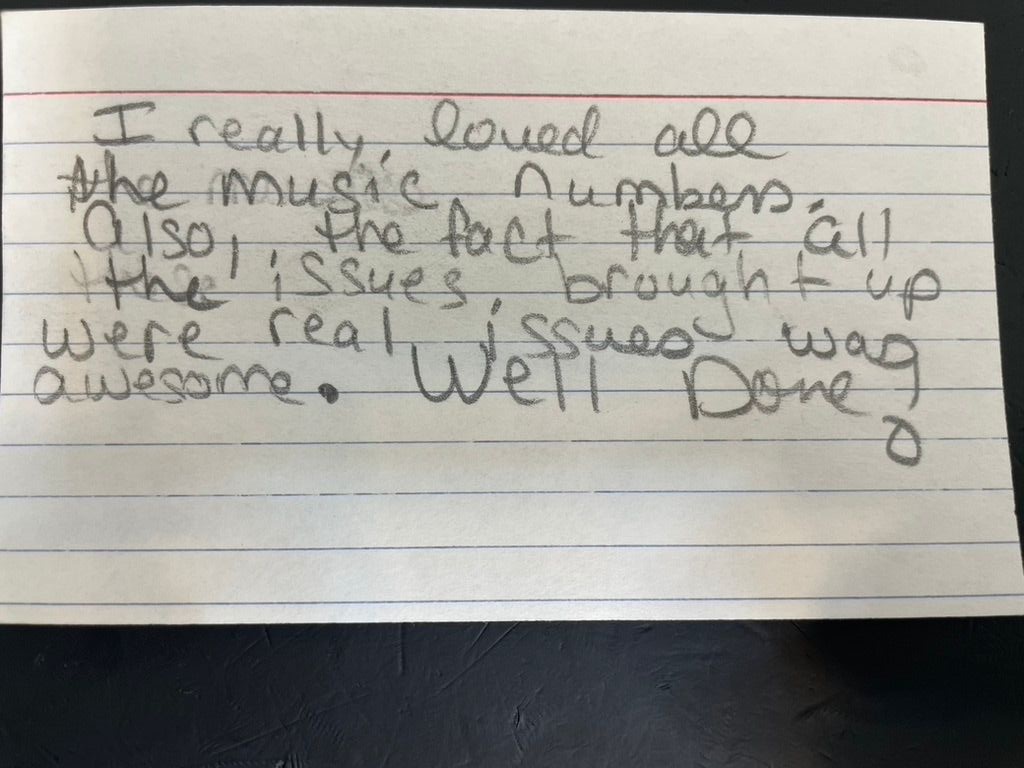 I really, loved all
the music numbers.
Also, the fact that all
the issues, brought up
were real issues was
awesome. Well Done!